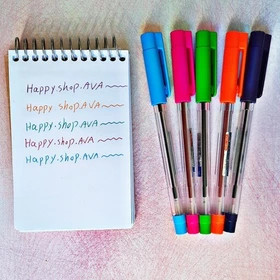 Happy.shop.AVA
Happy shop.AVA
Happy.shop.AVA
Happy.shop.AVA
Happy.shop.AVA